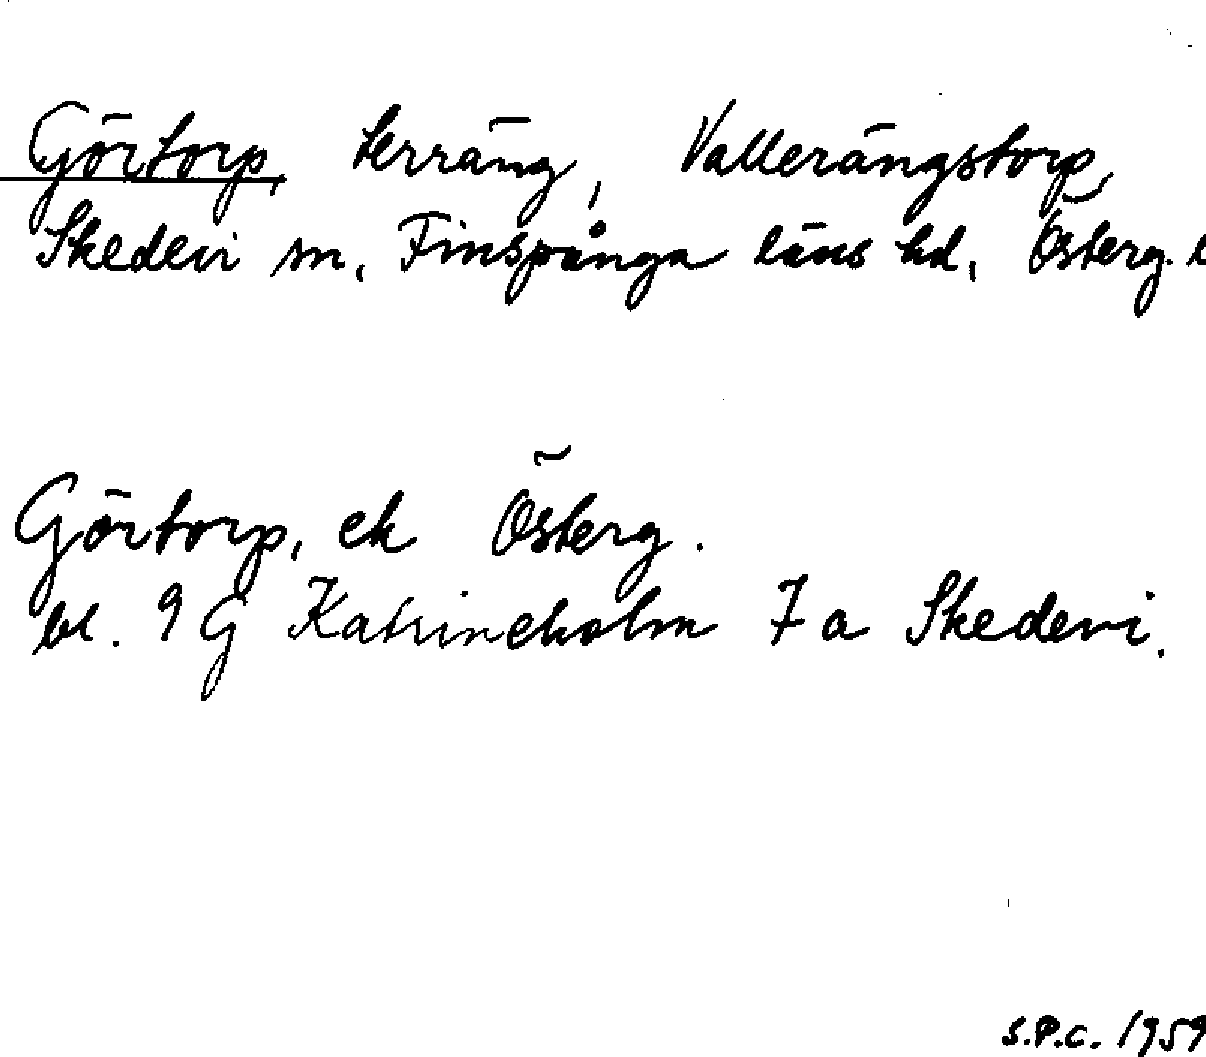 Görtorp, terräng, Vallerängstorp,
Skedevi sn, Finspånga läns hd, Österg. l
Görtorp, ek Österg.
bl. 9 G Katrineholm 7 a Skedevi.
S.P.C. 1959